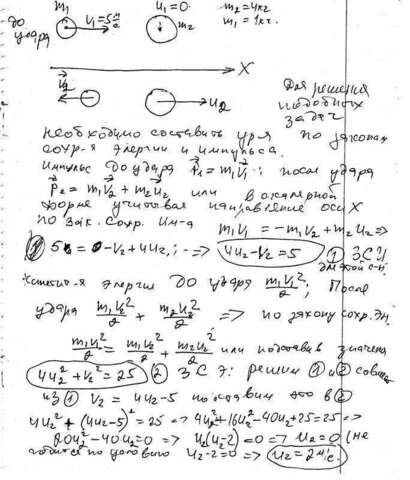 до удара m₁ V₁=5 м/с u₁=0 m₂ m₂=4кг
m₁=1кг
X
V₂ u₂
Для решения
подобных
задач
необходимо составить ур-я по законам
сохр-я энергии и импульса.
Импульс до удара P₁=m₁V₁; после удара
P₂=m₁V₂+m₂u₂ или в скалярной
форме учитывая направление оси X
по зак. сохр. им-а m₁V₁=-m₁V₂+m₂u₂=>
5=-V₂+4u₂; => 4u₂-V₂=5 ① ЗСИ
для этой с-ы
Кинетич-я энергия до удара m₁V₁²/2; После
удара m₁V₂²/2 + m₂u₂²/2 => по закону сохр. эн.
m₁V₁²/2 = m₁V₂²/2 + m₂u₂²/2 или подставив значения
4u₂²+V₂²=25 ② ЗСЭ: решим ① и ② совм
из ① V₂=4u₂-5 подставим это в ②
4u₂²+(4u₂-5)²=25 => 4u₂²+16u₂²-40u₂+25=25 =>
20u₂²-40u₂=0 => u₂(u₂-2)=0 => u₂=0 (не
годится по условию u₂-2=0 => u₂=2м/с.